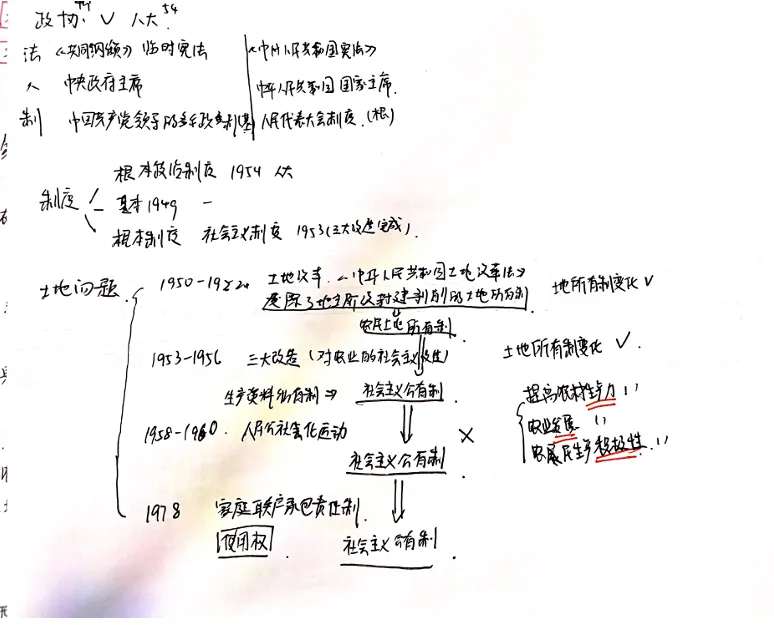 政协 V 人大 54
法 《共同纲领》临时宪法 《中华人民共和国宪法》
人 中央政府主席 中华人民共和国国家主席.
制 中国共产党领导的多党政 制 人民代表大会制度.(根)
根本政治制度 1954 人大
制度 基本 1949 一
根本制度 社会主义制度 1953(三大改造完成).
土地问题
1950-1952. 土地改革. 《中华人民共和国土地改革法》
废除了地主阶级封建剥削的土地所有制 地所有制变化 √
农民土地所有制
1953-1956 三大改造(对农业的社会主义改造) 土地所有制变化 √.
生产资料私有制 ⇒ 社会主义公有制 提高农村生产力
1958-1960. 人民公社化运动 × 农业发展
社会主义公有制 农民生产积极性.
1978 家庭联产承包责任制.
使用权. 社会主义公有制.